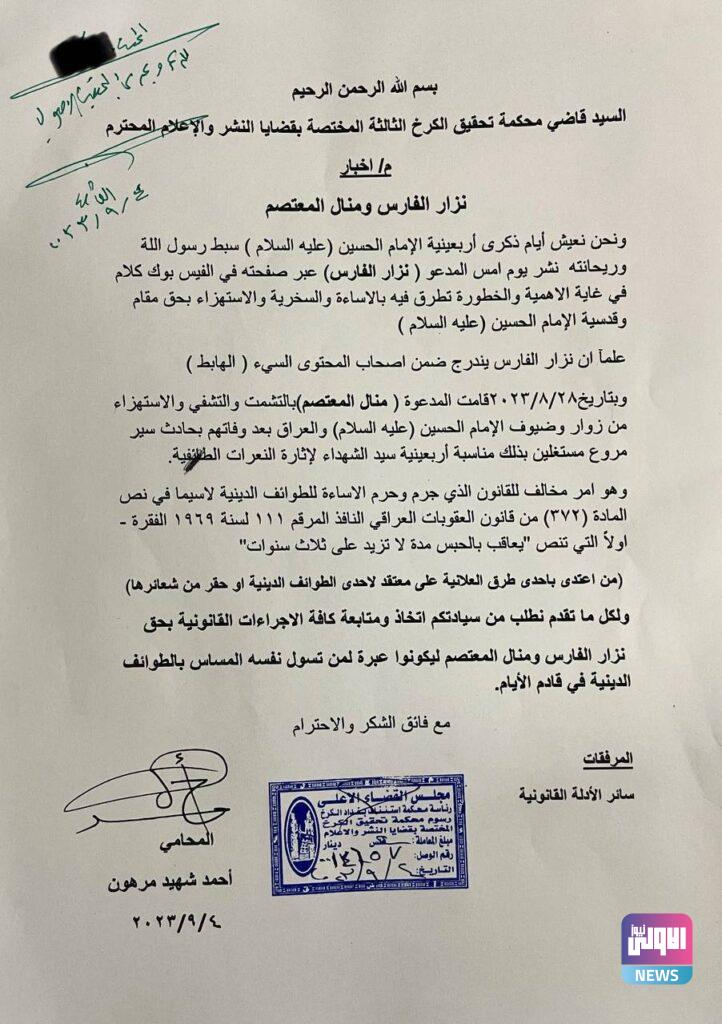 بسم الله الرحمن الرحيم
السيد قاضي محكمة تحقيق الكرخ الثالثة المختصة بقضايا النشر والإعلام المحترم
م/ اخبار
نزار الفارس ومنال المعتصم
ونحن نعيش أيام ذكرى أربعينية الإمام الحسين (عليه السلام ) سبط رسول اللة
وريحانته نشر يوم امس المدعو ( نزار الفارس) عبر صفحته في الفيس بوك كلام
في غاية الاهمية والخطورة تطرق فيه بالاساءة والسخرية والاستهزاء بحق مقام
وقدسية الإمام الحسين (عليه السلام )
علمآ ان نزار الفارس يندرج ضمن اصحاب المحتوى السيء ( الهابط )
وبتاريخ٢٠٢٣/٨/٢٨قامت المدعوة ( منال المعتصم)بالتشمت والتشفي والاستهزاء
من زوار وضيوف الإمام الحسين (عليه السلام) والعراق بعد وفاتهم بحادث سير
مروع مستغلين بذلك مناسبة أربعينية سيد الشهداء لإثارة النعرات الطائفية.
وهو امر مخالف للقانون الذي جرم وحرم الاساءة للطوائف الدينية لاسيما في نص
المادة (٣٧٢) من قانون العقوبات العراقي النافذ المرقم ١١١ لسنة ١٩٦٩ الفقرة -
اولاً التي تنص "يعاقب بالحبس مدة لا تزيد على ثلاث سنوات"
(من اعتدى باحدى طرق العلانية على معتقد لاحدى الطوائف الدينية او حقر من شعائرها)
ولكل ما تقدم نطلب من سيادتكم اتخاذ ومتابعة كافة الاجراءات القانونية بحق
نزار الفارس ومنال المعتصم ليكونوا عبرة لمن تسول نفسه المساس بالطوائف
الدينية في قادم الأيام.
مع فائق الشكر والاحترام
المرفقات
سائر الأدلة القانونية
مجلس القضاء الاعلى
رئاسة محكمة استئناف بغداد الكرخ
رسوم محكمة تحقيق الكرخ
المختصة بقضايا النشر والاعلام
مبلغ المعاملة: دينار
رقم الوصل:
التاريخ:
المحامي
أحمد شهيد مرهون
٢٠٢٣/٩/٤
الاولى نيوز
NEWS